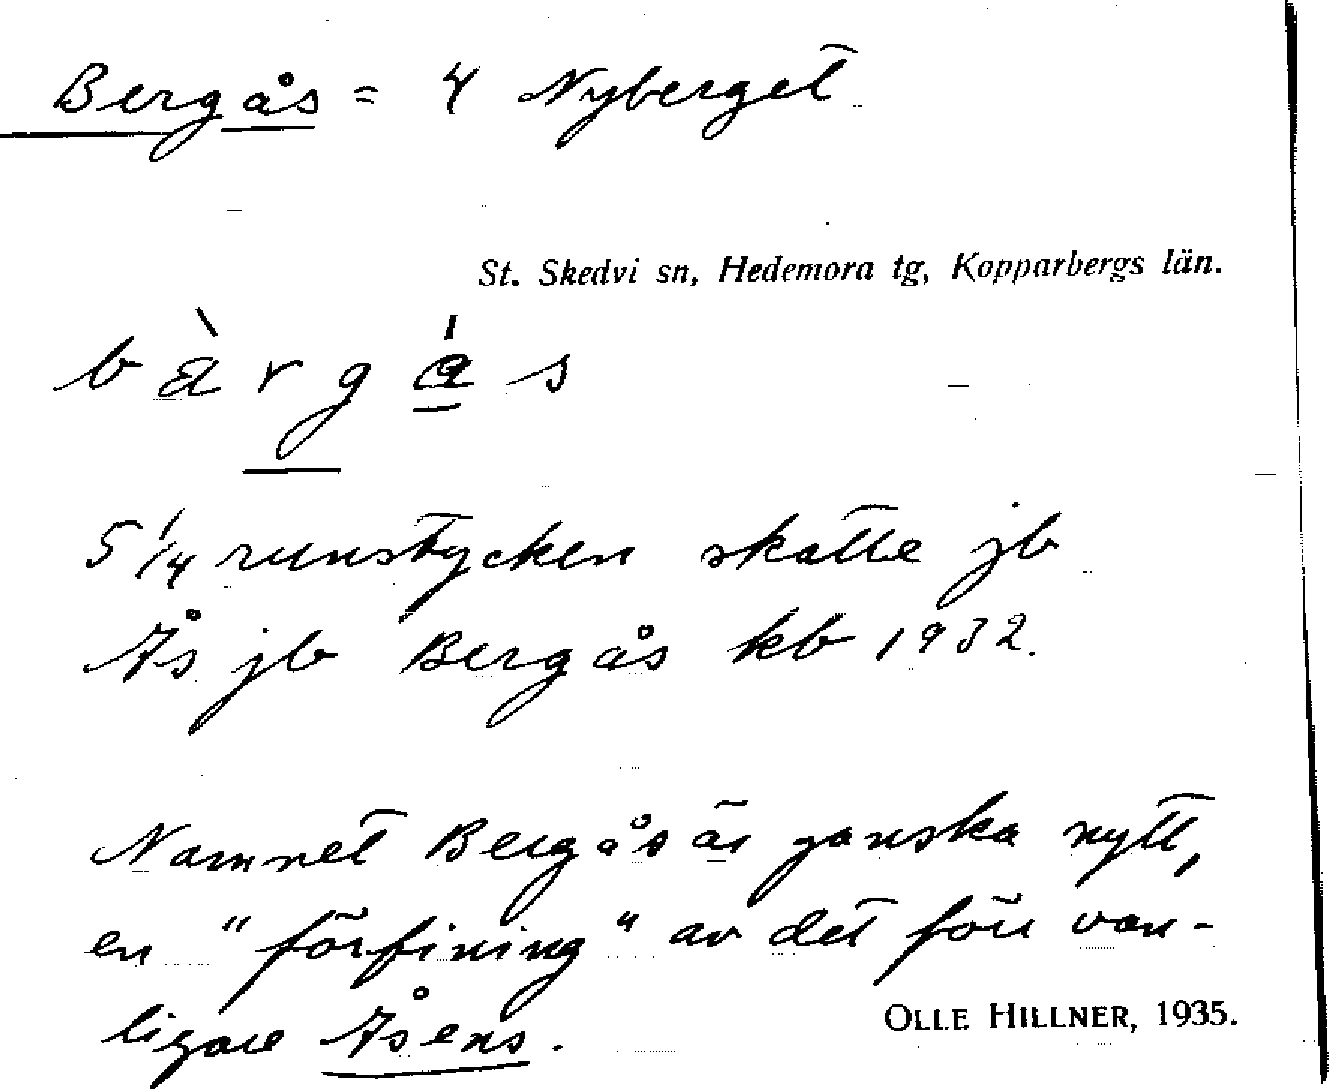 Bergås = 4 Nyberget
St. Skedvi sn, Hedemora tg, Kopparbergs län.
5 1/4 runstycken skatte jb
Ås jb Bergås kb 1932.
Namnet Bergås är ganska nytt,
en "förfining" av det förr van-
ligare Åsens.
OLLE HILLNER, 1935.